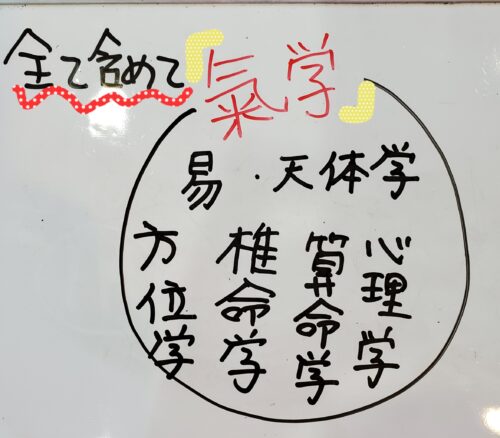 全て含めて『氣学』
易・天体学
方位学
椎命学
算命学
心理学